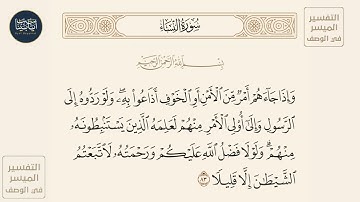 التفسير
الميسر
في الوصف
سُورَةُ النِّسَاءِ
بِسْمِ اللَّهِ الرَّحْمَٰنِ الرَّحِيمِ
وَإِذَا جَاءَهُمْ أَمْرٌ مِّنَ الْأَمْنِ أَوِ الْخَوْفِ أَذَاعُوا بِهِ ۖ وَلَوْ رَدُّوهُ إِلَى
الرَّسُولِ وَإِلَىٰ أُولِي الْأَمْرِ مِنْهُمْ لَعَلِمَهُ الَّذِينَ يَسْتَنبِطُونَهُ
مِنْهُمْ ۗ وَلَوْلَا فَضْلُ اللَّهِ عَلَيْكُمْ وَرَحْمَتُهُ لَاتَّبَعْتُمُ
الشَّيْطَانَ إِلَّا قَلِيلًا ٨٣
التفسير
الميسر
في الوصف